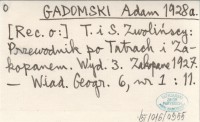 GADOMSKI Adam 1928a.
[Rec. o:] T. i S. Zwolińscy:
Przewodnik po Tatrach i Za-
kopanem. Wyd. 3. Zakopane 1927.
— Wiad. Geogr. 6, nr 1 : 11.